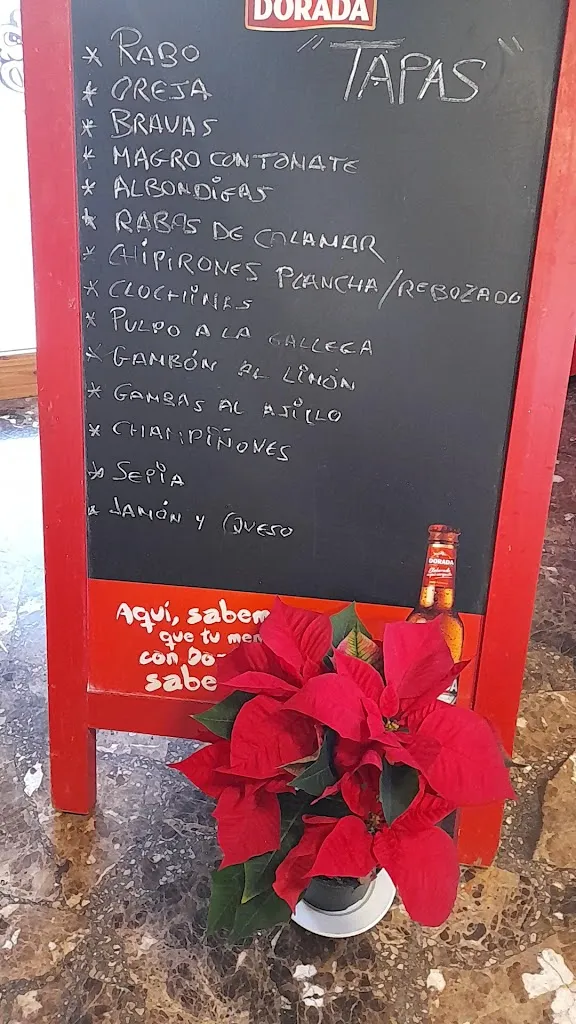 DORADA
"TAPAS"
* RABO
* OREJA
* BRAVAS
* MAGRO CON TOMATE
* ALBONDIGAS
* RABAS DE CALAMAR
* CHIPIRONES PLANCHA/REBOZADO
* CLOCHINAS
* PULPO A LA GALLEGA
* GAMBÓN AL LIMÓN
* GAMBAS AL AJILLO
* CHAMPIÑONES
* SEPIA
* JAMÓN Y QUESO
DORADA
Aquí, sabem
que tu men
con Do
sabe